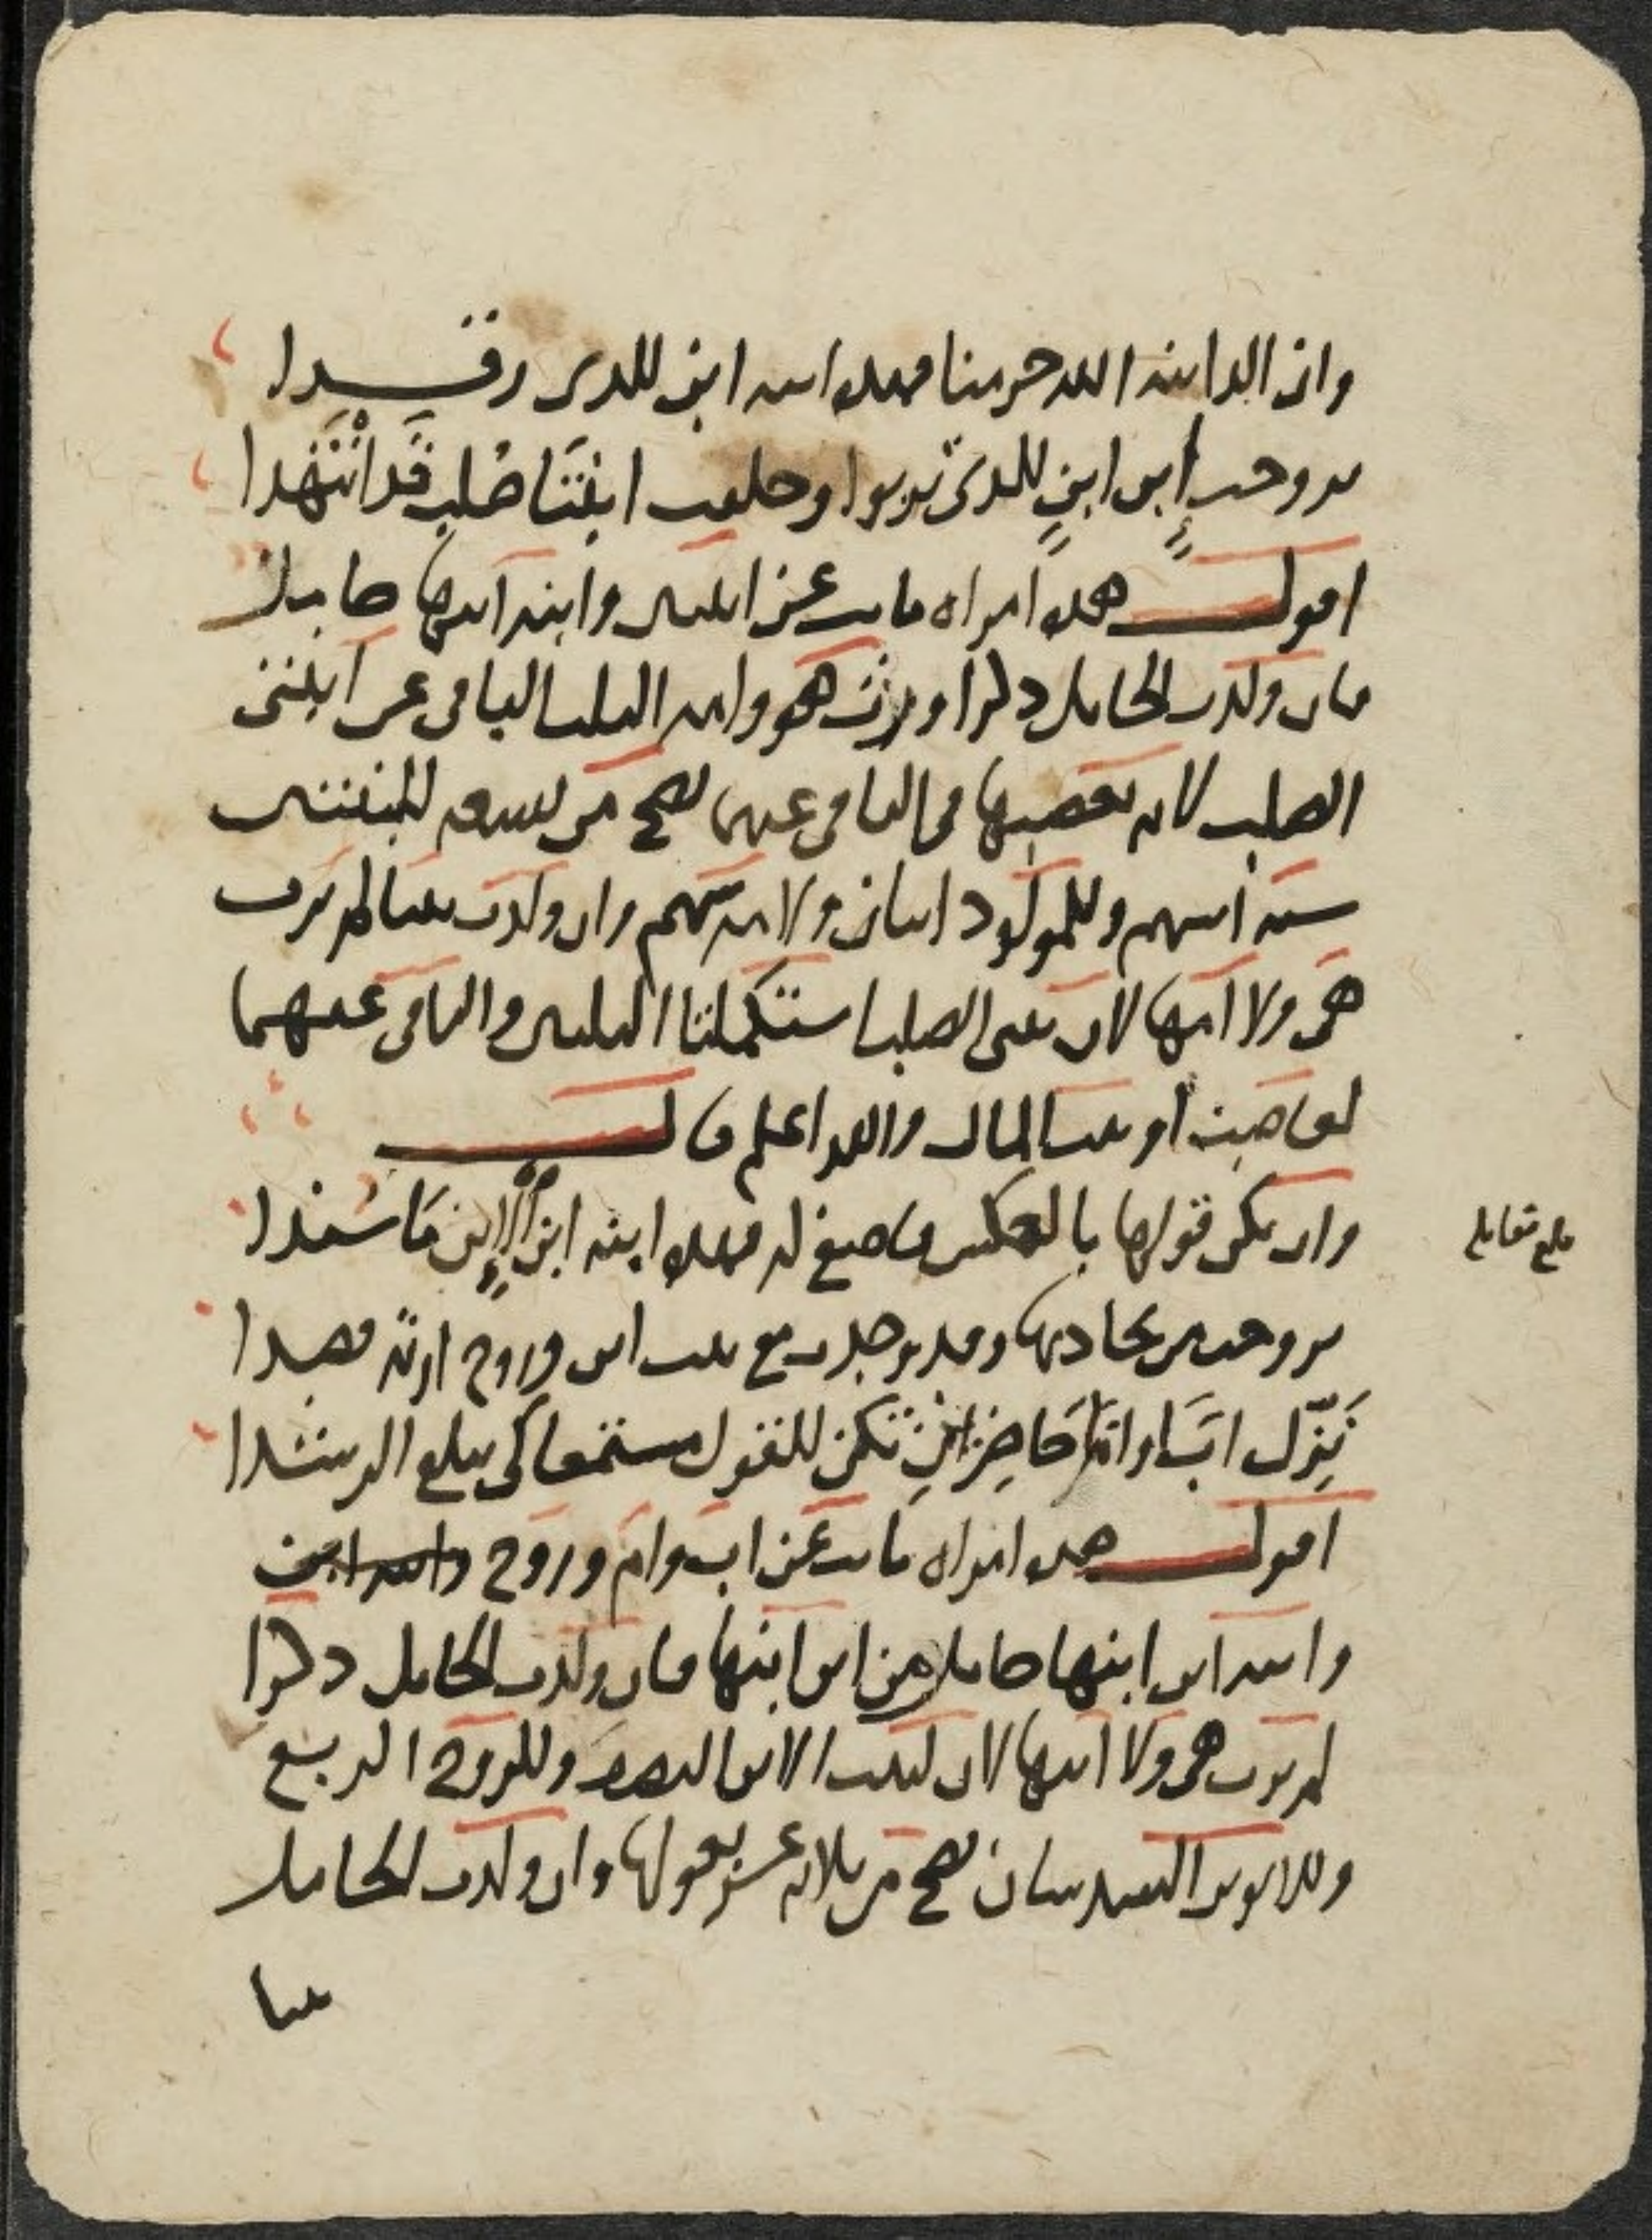 وان الد ابنه الله حرمنا فهذه ابنه ابن للذى رقـــدا
تزوجت ابن ابن للذى تربوا وخلفت ابنتا صلب قد انتهدا
اقول هذه امراه ماتت عن ابنتين وابنة ابنها حاملا
فان ولدت الحامل ذكرا ورث هو وامه الثلث الباقى عن ابنتى
الصلب لانه تعصبها فى الباقى عنهما تصح من تسعه للبنتين
سته اسهم وللمولود اثنان ولامه سهم وان ولدت بنتا لم ترث
هى ولا امها لان بنتى الصلب استكملتا الثلثين والباقى عنهما
لعاصبه او بيت المال والله اعلم قال
وان يكن قولها بالعكس فاصغ له فهذه ابنة ابن الابن فاستفدا
تزوجت من يحاذيها وقد وجدت مع بنت ابن وزوج ارثه قصدا
نزل ابا واما حاضراين تكن للقول مستمعا كى يبلغ الرشدا
اقول هذه امراه ماتت عن اب وام وزوج وابنه ابن
وابنه ابن ابنها حاملا من ابن ابنها فان ولدت الحامل ذكرا
لم يرث هو ولا امها لان لبنت الابن النصف وللزوج الربع
وللابوين السدسان تصح من ثلاثه عشر بعولها وان ولدت الحامل
بنتا
بلغ مقابله